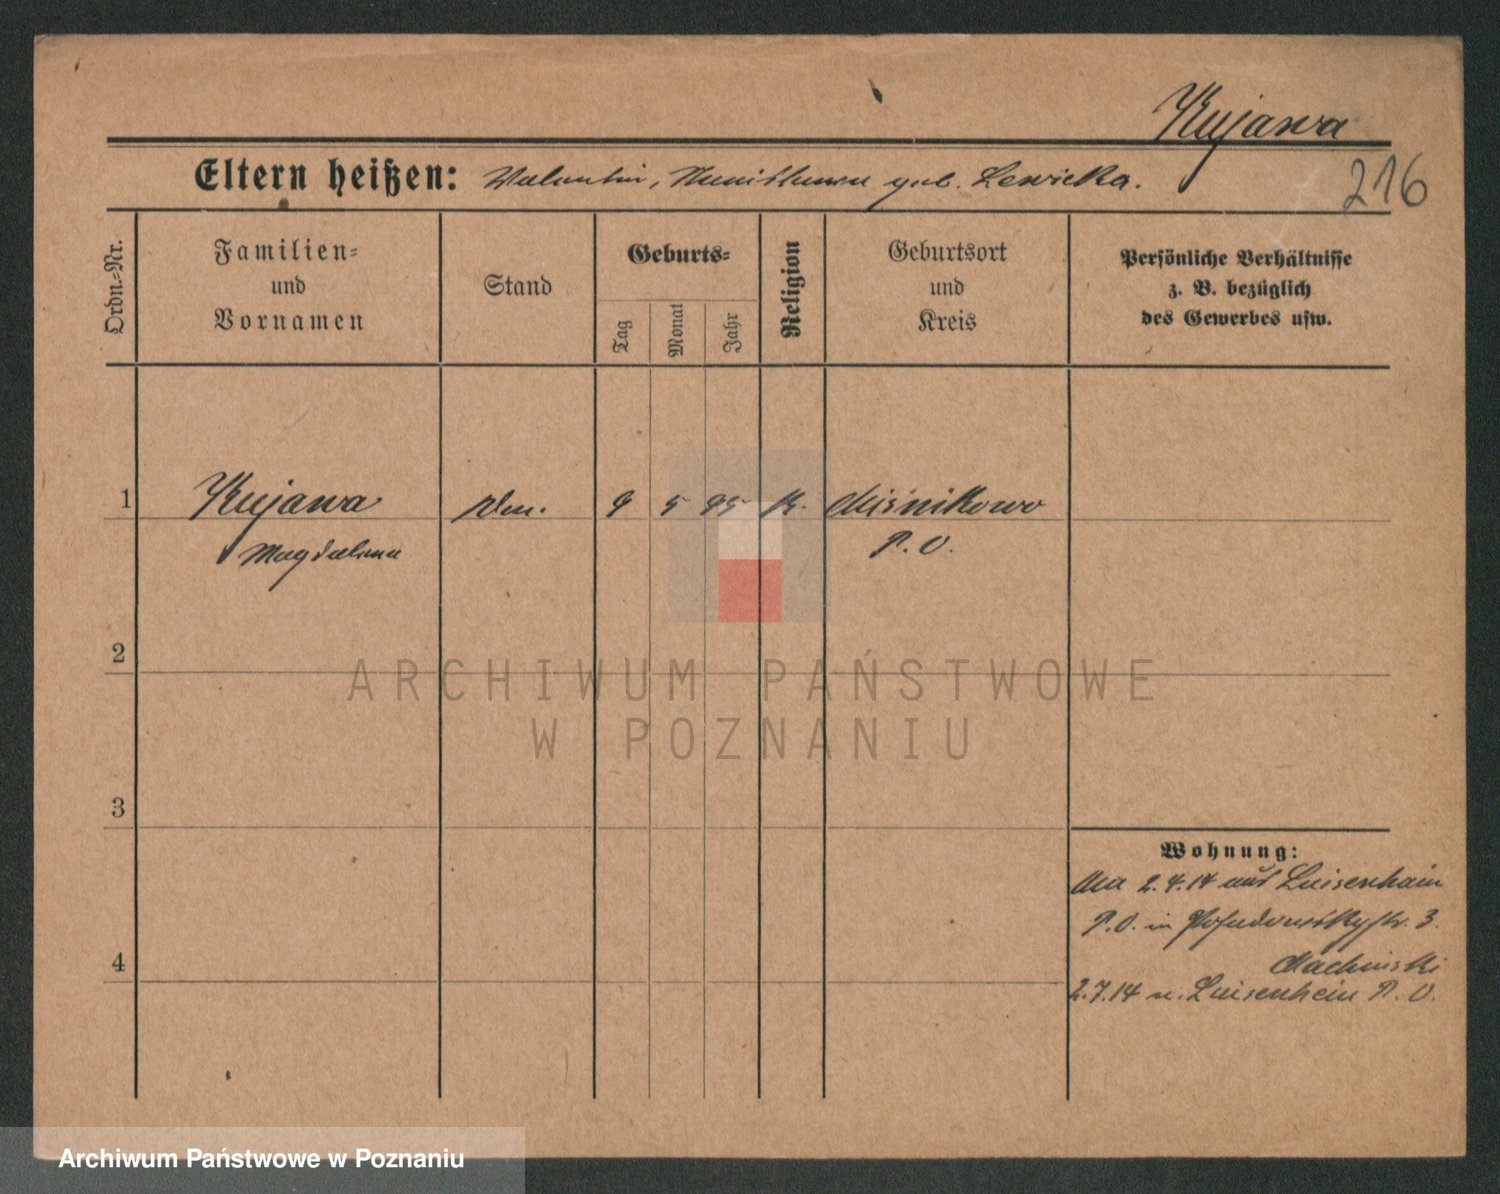 Kujawa
216
Eltern heißen: Valentin, Stanislawa geb. Lewicka.
Ordn.-Nr.
Familien-
und
Vornamen
Stand
Geburts-
Tag
Monat
Jahr
Religion
Geburtsort
und
Kreis
Persönliche Verhältnisse
z. B. bezüglich
des Gewerbes usw.
1
Kujawa
9 5 95 k.
P. O.
Magdalena
2
ARCHIWUM PAŃSTWOWE
W POZNANIU
3
Wohnung:
2.4.14 aus Luisenhain
P.O. in 3.
4
2.7.14 n. Luisenhain P. O.
Archiwum Państwowe w Poznaniu